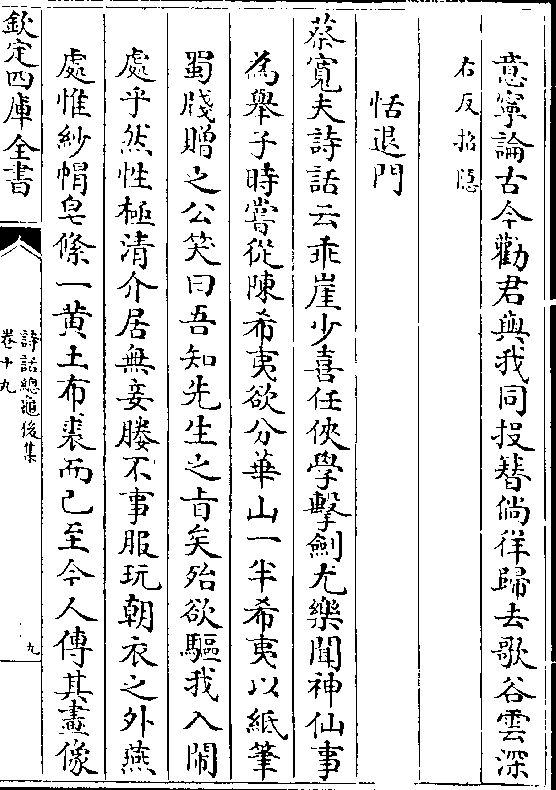 意寧論古今勸君與我同投簪倘徉歸去歌谷雲深
右反招隠
恬退門
蔡寛夫詩話云乖崖少喜任俠學擊劍尤樂聞神仙事
為舉子時嘗從陳希夷欲分華山一半希夷以紙筆
蜀牋贈之公笑曰吾知先生之㫖矣殆欲驅我入閙
處乎然性極清介居無妾媵不事服玩朝衣之外燕
處惟紗帽皂絛一黄土布裘而已至今人傳其畫像
欽定四庫全書
詩話總龜後集
卷十九
九